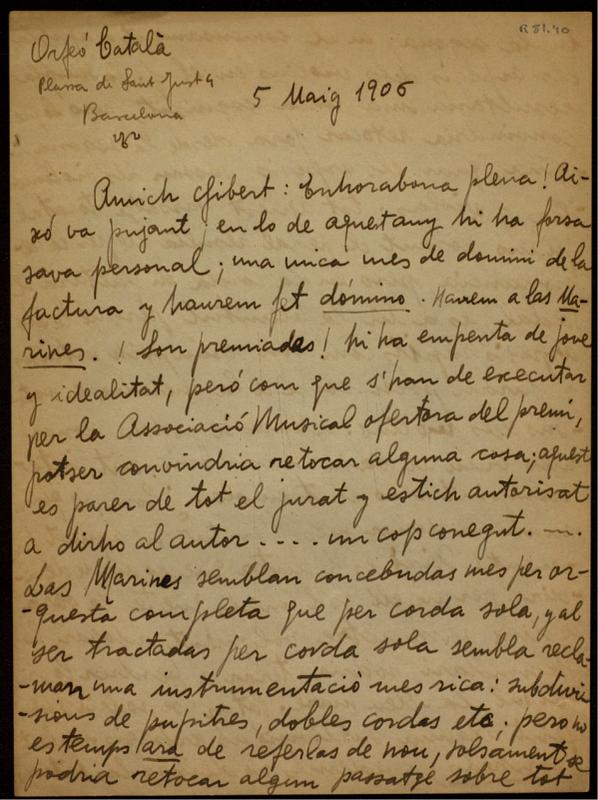 R 81.40
Orfeó Català
Plassa de Sant Just 4
Barcelona
5 Maig 1906
Amich Gibert: Enhorabona plena! Ai-
xó va pujant; en lo de aquest any hi ha forsa
sava personal; una unica mes de domini de la
factura y haurem fet dómino. Anem a las Ma-
rines. ! Son premiadas! hi ha empenta de jove
y idealitat, peró com que s'han de executar
per la Associació Musical ofertora del premi,
potser convindria retocar alguna cosa; aquest
es parer de tot el jurat y estich autorisat
a dirho al autor.... un cop conegut. —.
Las Marines semblan concebudas mes per or-
-questa completa que per corda sola, y al
ser tractadas per corda sola sembla recla-
-man una instrumentació mes rica: subdivi-
-sions de pupitres, dobles cordas etc. pero no
es temps ara de referlas de nou, solsament se
podria retocar algun passatge sobre tot